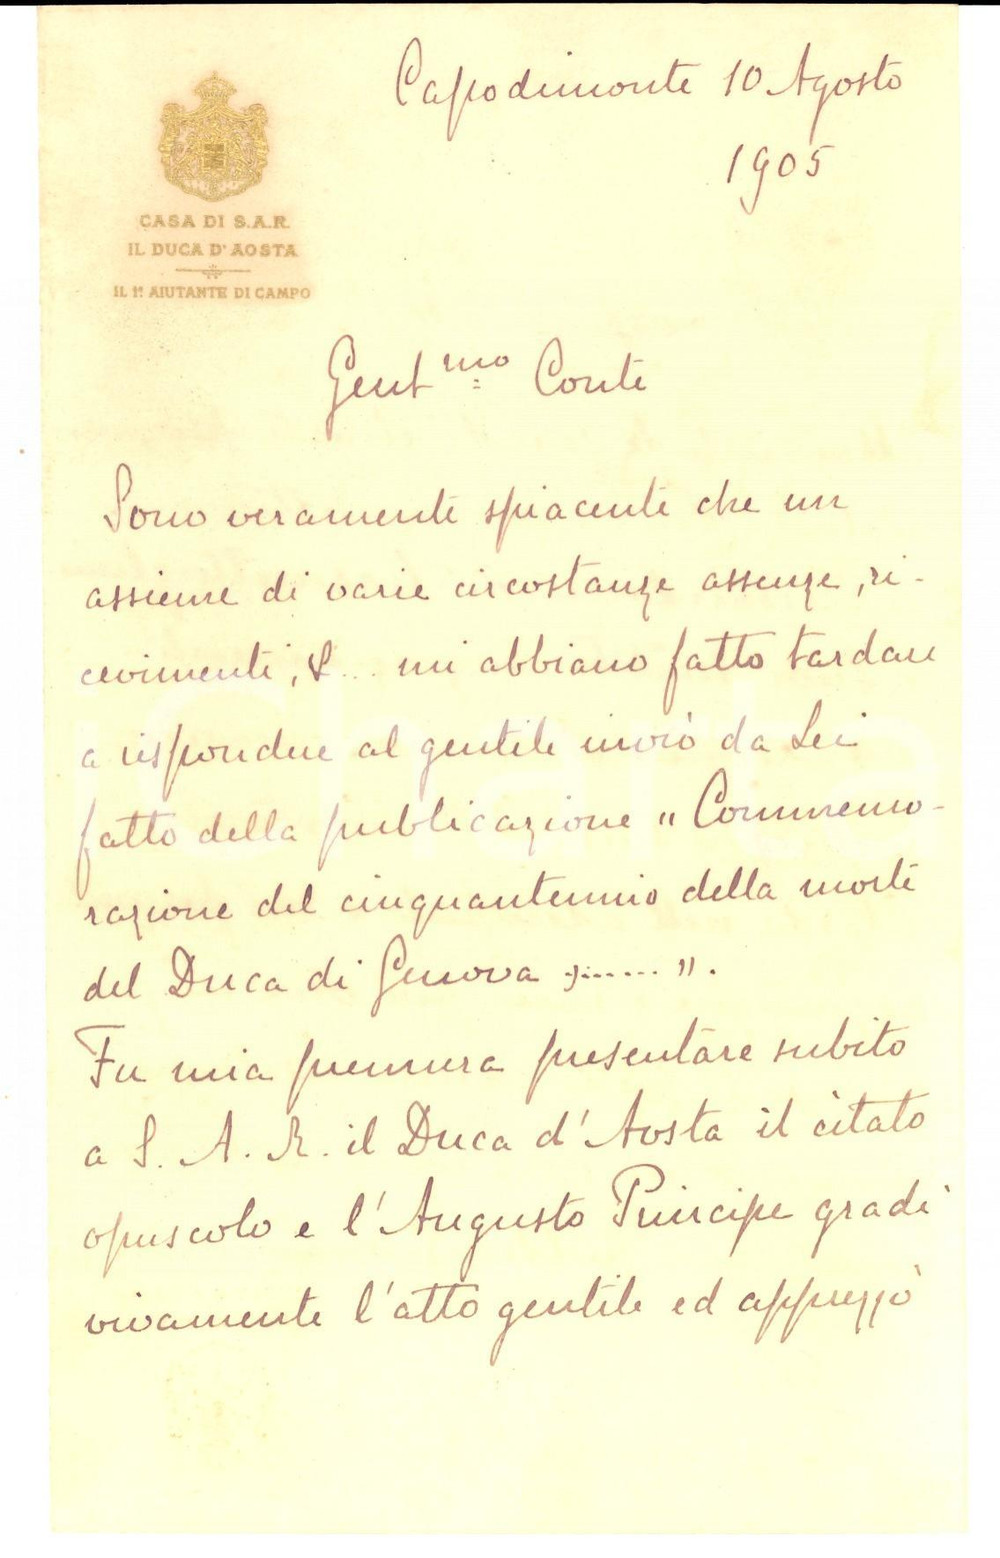 Capodimonte 10 Agosto
1905
CASA DI S.A.R.
IL DUCA D'AOSTA
IL 1º AIUTANTE DI CAMPO
Gent.mo Conte
Sono veramente spiacente che un
assieme di varie circostanze assenze, ri-
cevimenti, &... mi abbiano fatto tardare
a rispondere al gentile inviò da Lei
fatto della pubblicazione "Commemo-
razione del cinquantennio della morte
del Duca di Genova ,......".
Fu mia premura presentare subito
a S. A. R. il Duca d'Aosta il citato
opuscolo e l'Augusto Principe gradì
vivamente l'atto gentile ed apprezzò